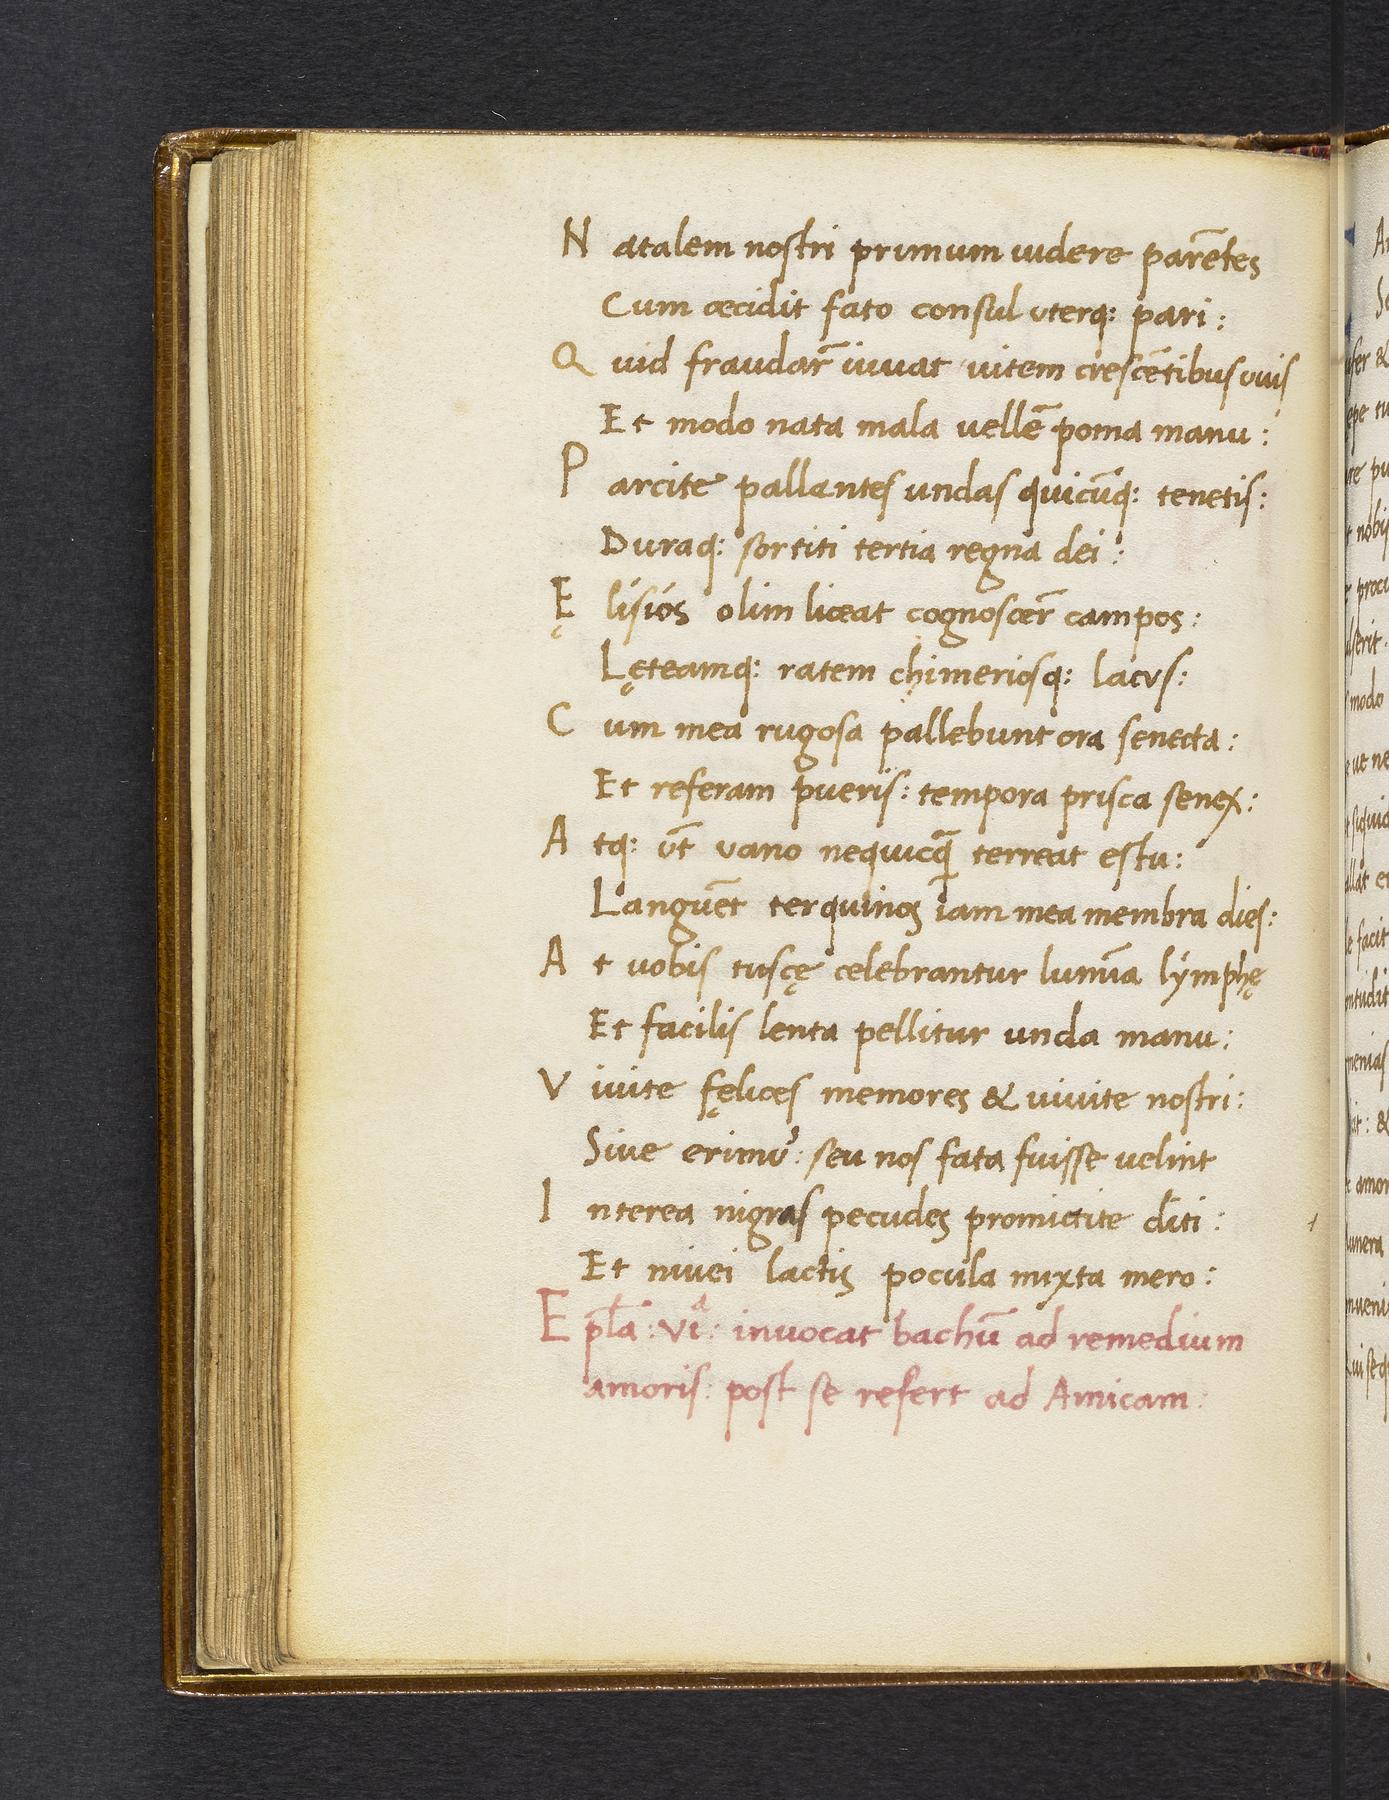 N atalem nostri primum uidere parētes
Cum cecidit fato consul vterq: pari:
Q uid fraudar̄ iuuat uitem crescētibus uuis
Et modo nata mala vellē poma manu:
P arcite pallantes undas quicūq: tenetis:
Duraq: sortiti tertia regna dei:
Ę lisios olim liceat cognoscer̄ campos:
Lęteamq: ratem chimeriosq: lacvs:
C um mea rugosa pallebunt ora senecta:
Et referam pueris: tempora prisca senex:
A tq: vt̄ vano nequicq̄ terreat estu:
Languēt terquinos iam mea membra dies:
A t uobis tuscę celebrantur lumīa lymphę
Et facilis lenta pellitur unda manu:
V iuite fęlices memores & viuite nostri:
Siue erimꝰ: seu nos fata fuisse uelint
I nterea nigras pecudes promictite diti:
Et niuei lactis pocula mixta mero:
E pl̄a: viᵃ: inuocat bachū ad remedium
amoris: post se refert ad Amicam: